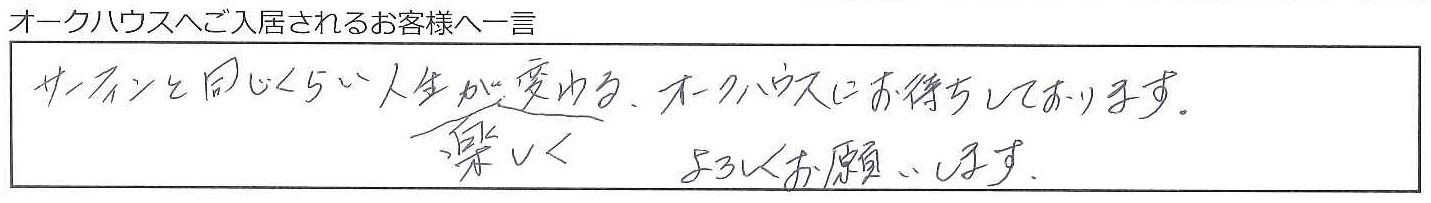 オークハウスへご入居されるお客様へ一言
サーフィンと同じくらい人生が変わる、オークハウスにお待ちしております。
楽しく
よろしくお願いします.